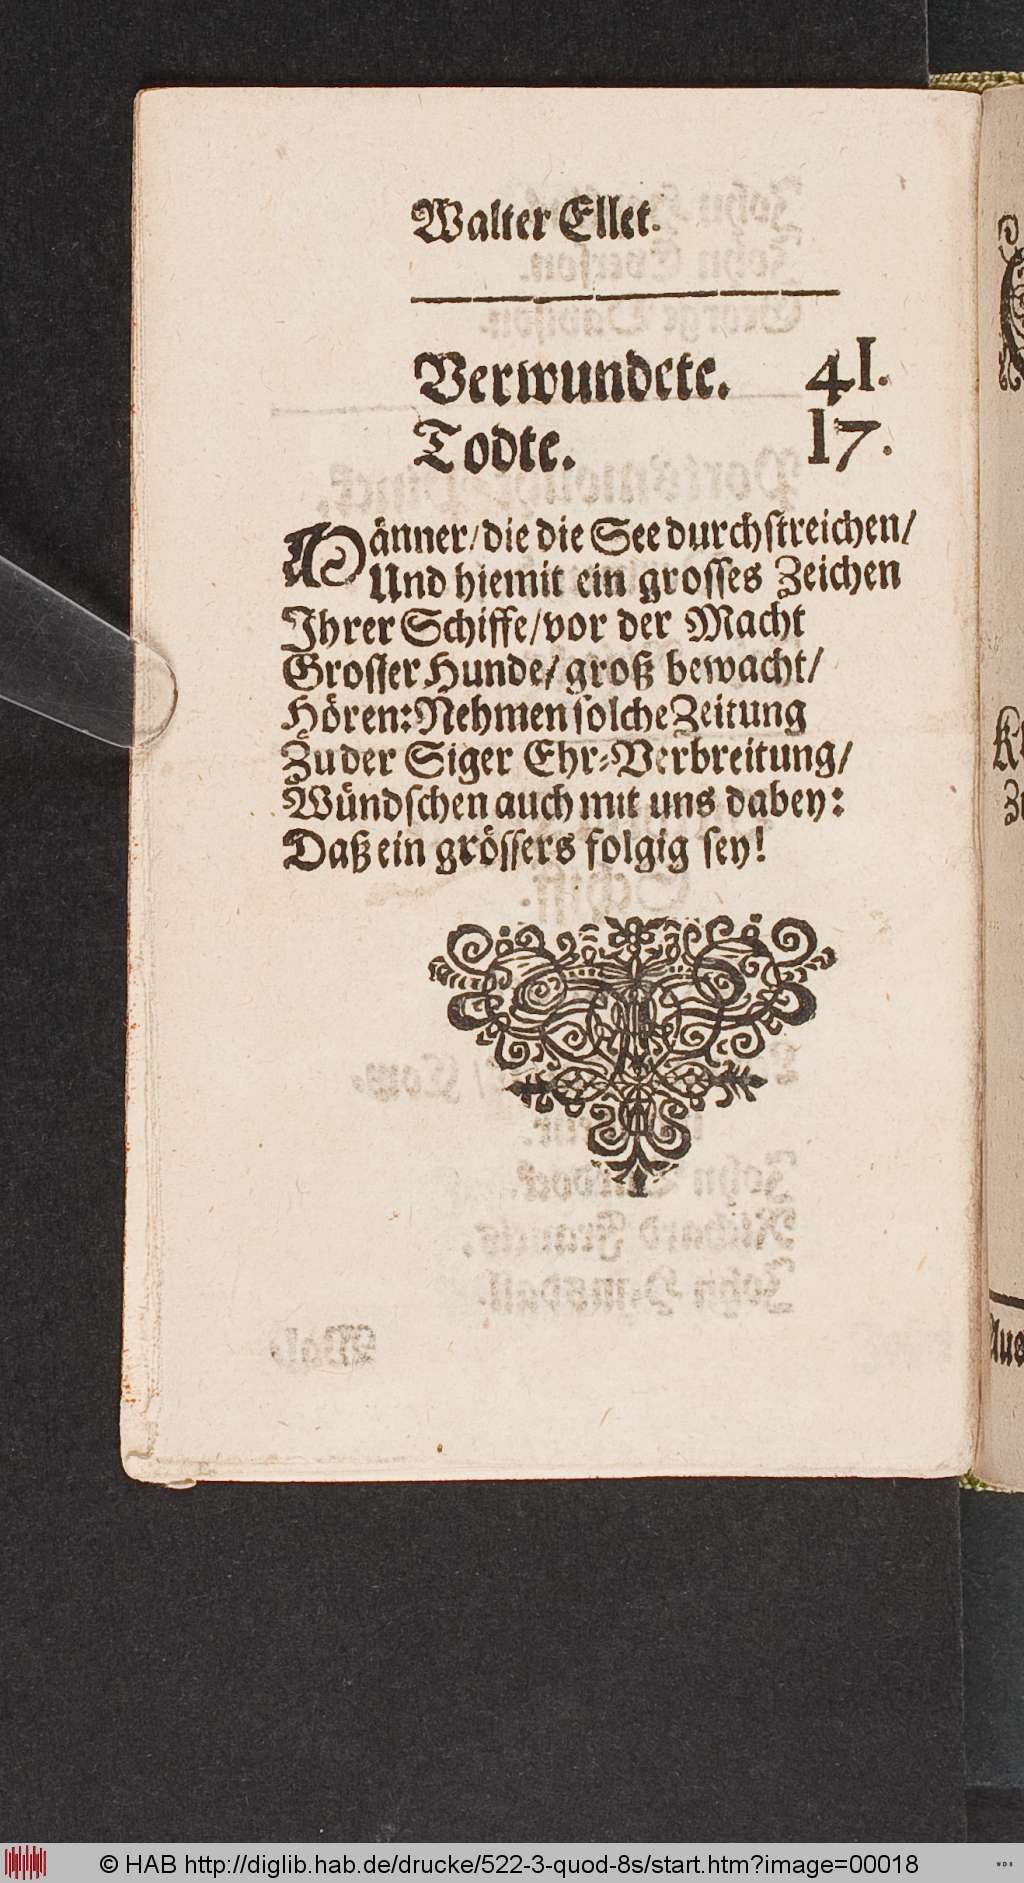 Walter Ellet.
Verwundete. 41.
Todte. 17.
Männer/die die See durchstreichen/
Und hiemit ein grosses Zeichen
Ihrer Schiffe/vor der Macht
Grosser Hunde/ groß bewacht/
Hören: Nehmen solche Zeitung
Zu der Siger Ehr-Verbreitung/
Wündschen auch mit uns dabey:
Daß ein grössers folgig sey!
© HAB http://diglib.hab.de/drucke/522-3-quod-8s/start.htm?image=00018